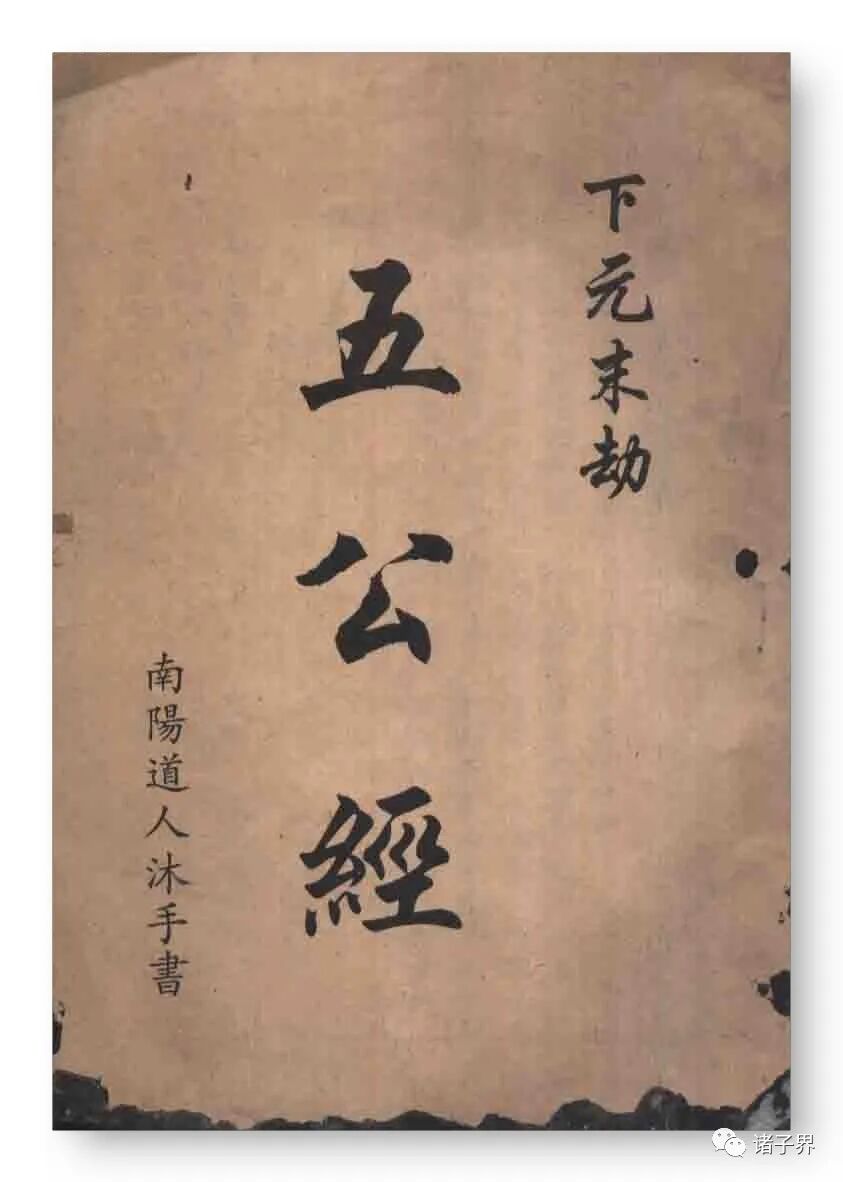 下元末劫
五公經
南陽道人沐手書
诸子界